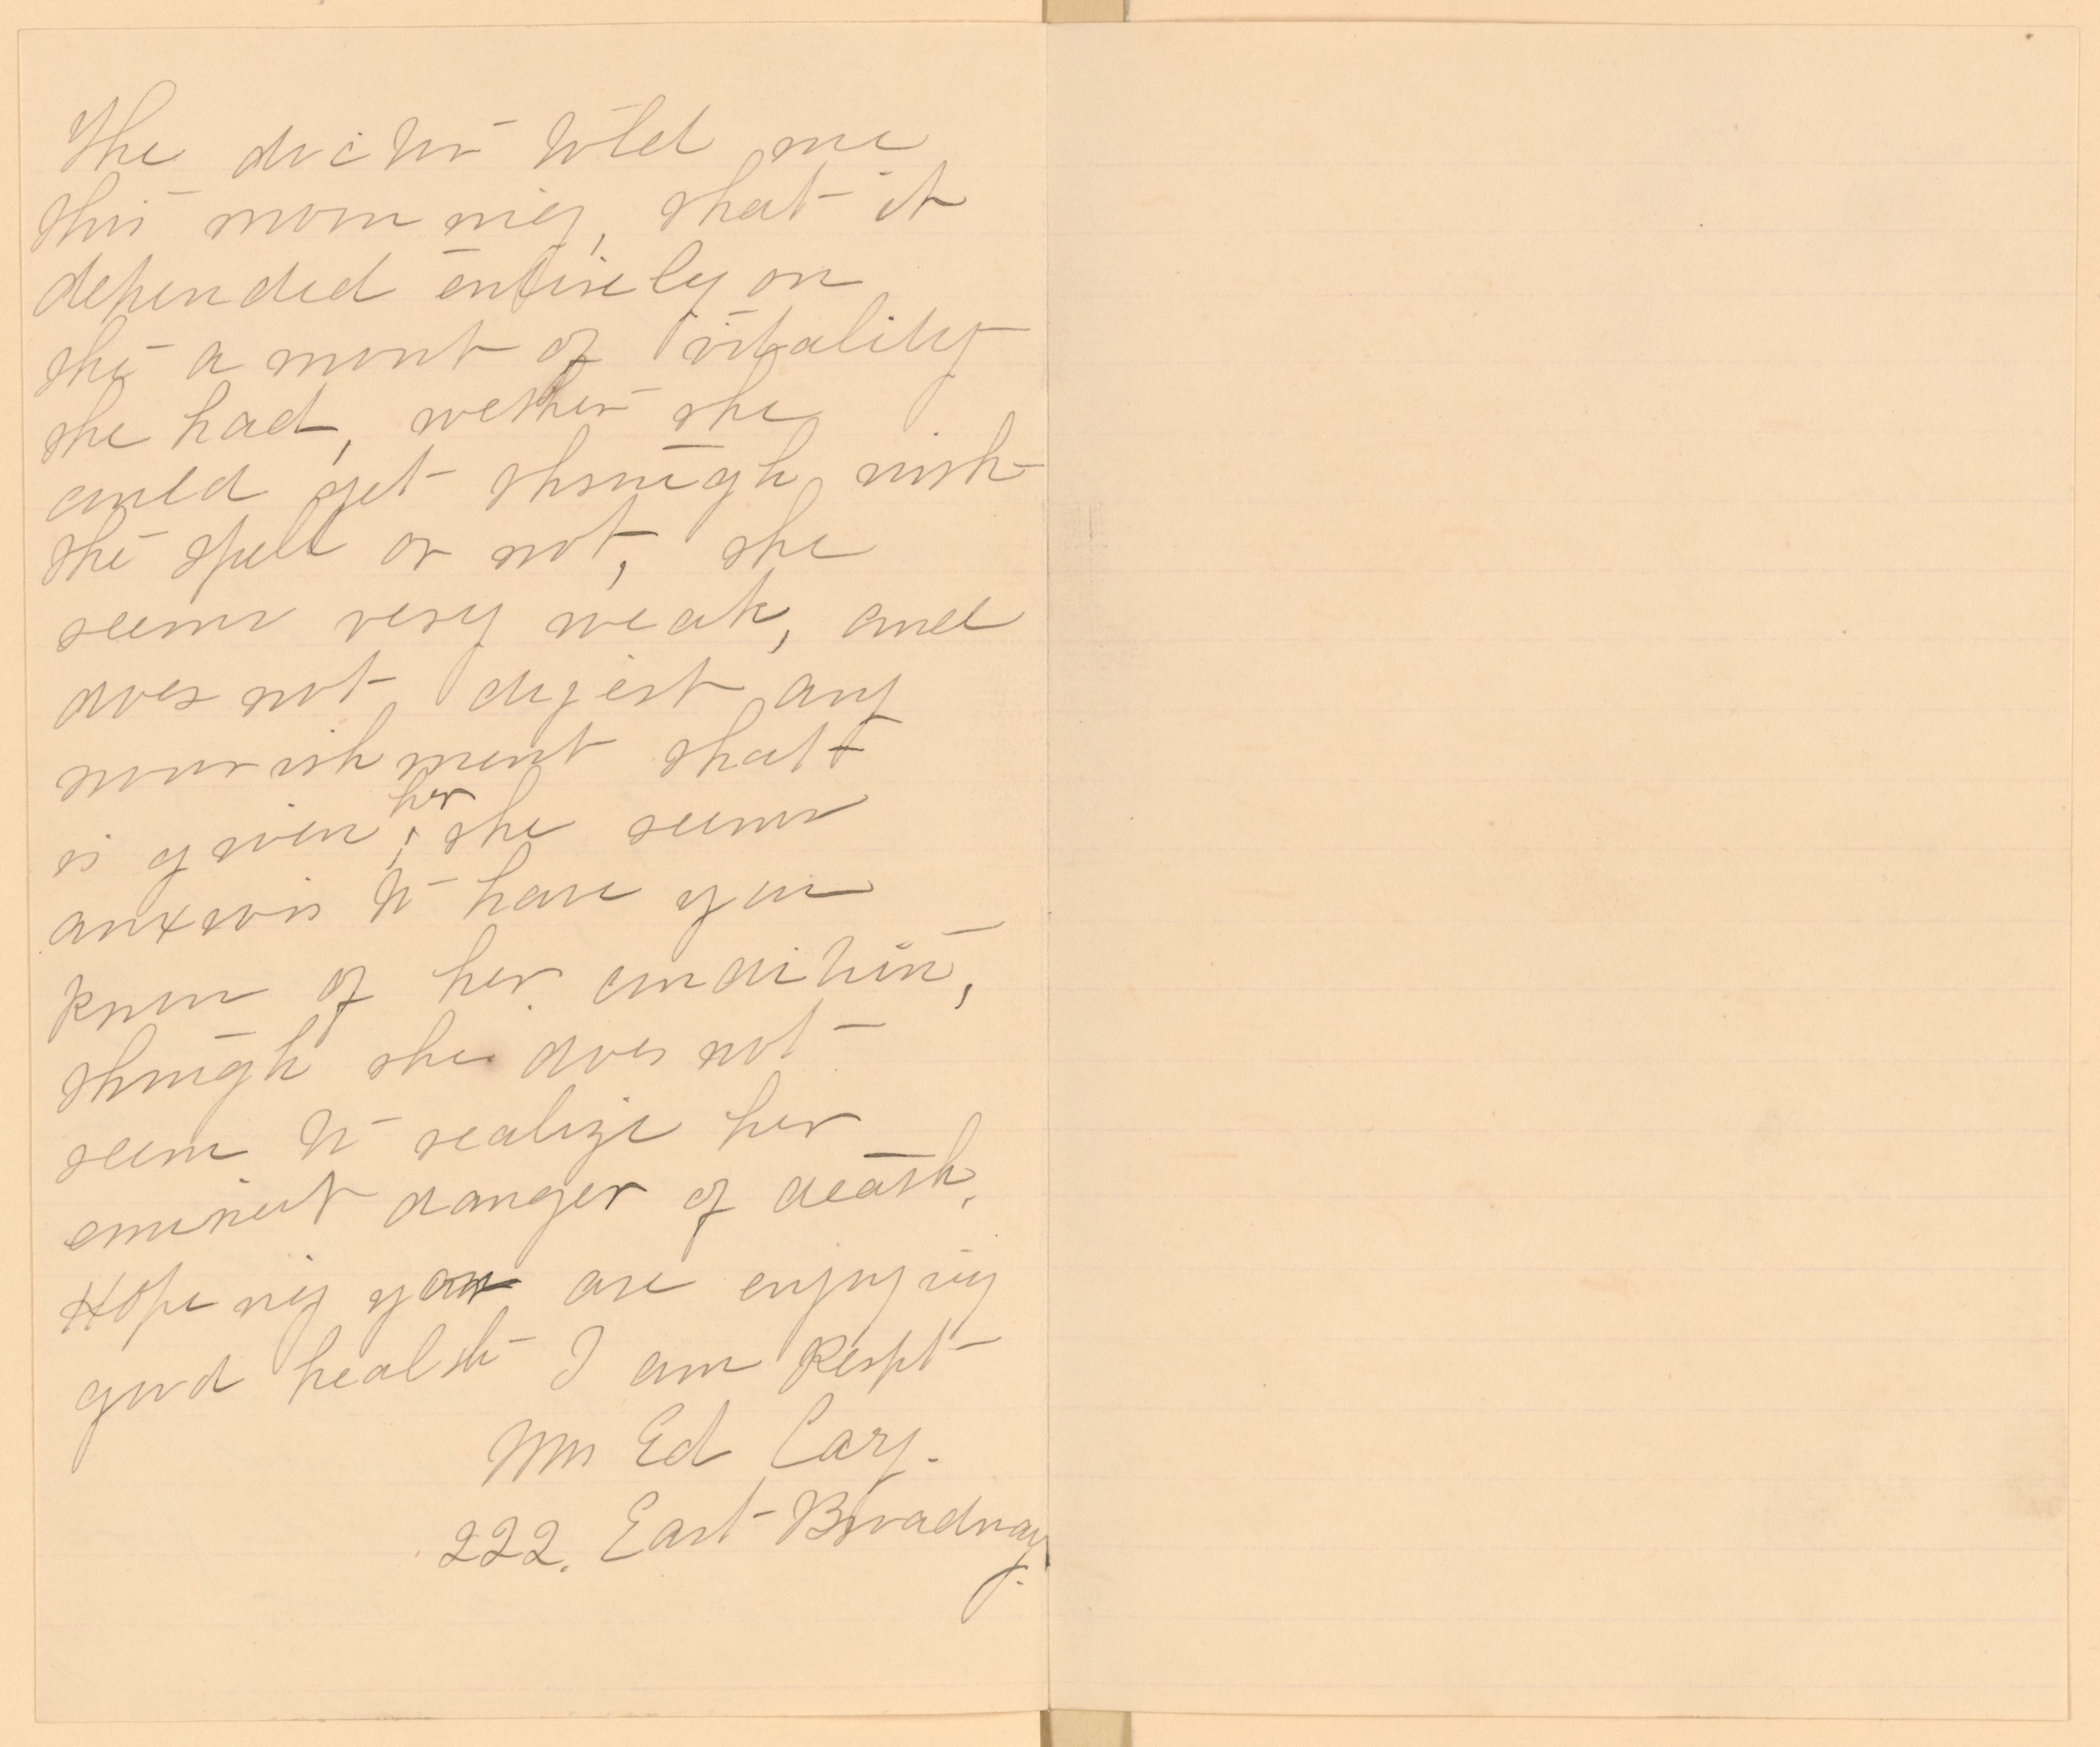 The doctor told me
this morning, that it
depended entirely on
the amount of vitality
she had, wether she
could get through with
the spell or not, she
seems very weak, and
does not digest any
nourishment that
is given her, she seems
anxious to have you
know of her condition,
though she does not
seem to realize her
eminent danger of death.
Hopeing you are enjoying
good health I am Respt
Mrs Ed Cary.
222. East Broadway.